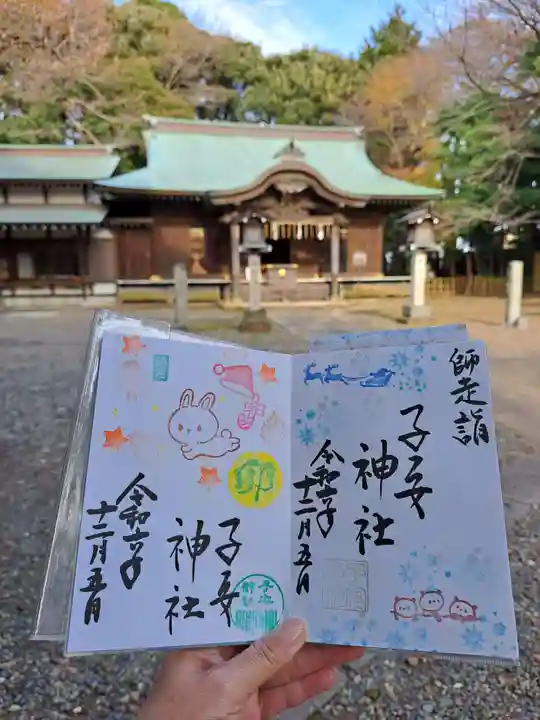 師走詣
子安
神社
令和六年
十二月五日
卯
子安
神社
令和六年
十二月五日